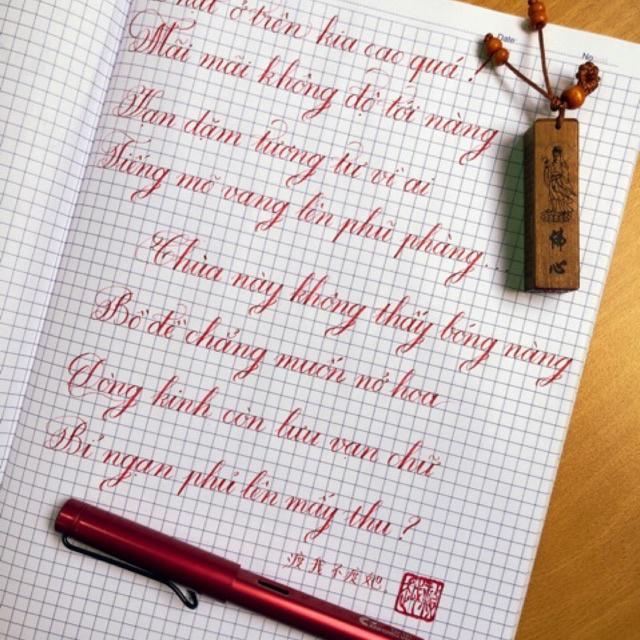 ở trên kia cao quá!
Mãi mãi không độ tới nàng
Vạn dặm tương tư vì ai
Tiếng mõ vang lên phũ phàng...
Chùa này không thấy bóng nàng
Bồ đề chẳng muốn nở hoa
Dòng kinh còn lưu vạn chữ
Bỉ ngạn phủ lên mấy thu?
渡我不渡她
Date:
No.
佛心